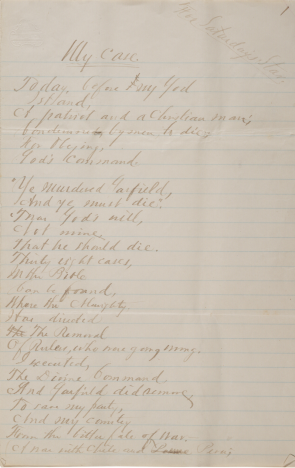 1
For Saturday's Star.
My Case
Today, before my God
I stand,
A patriot and a Christian man;
Condemned by men to die;
for obeying
God's Command.
"Ye Murdered Garfield,
And ye must die".
'Twas God's will,
Not mine,
That he should die.
Thirty eight cases,
In the Bible
Can be found,
Where the Almighty
Has directed
The The Removal
Of Rulers, who were going wrong.
I executed,
The Divine Command.
And Garfield did remove,
To save my party,
And my country
From the bitter fate of War.
A War with Chili and Peru;